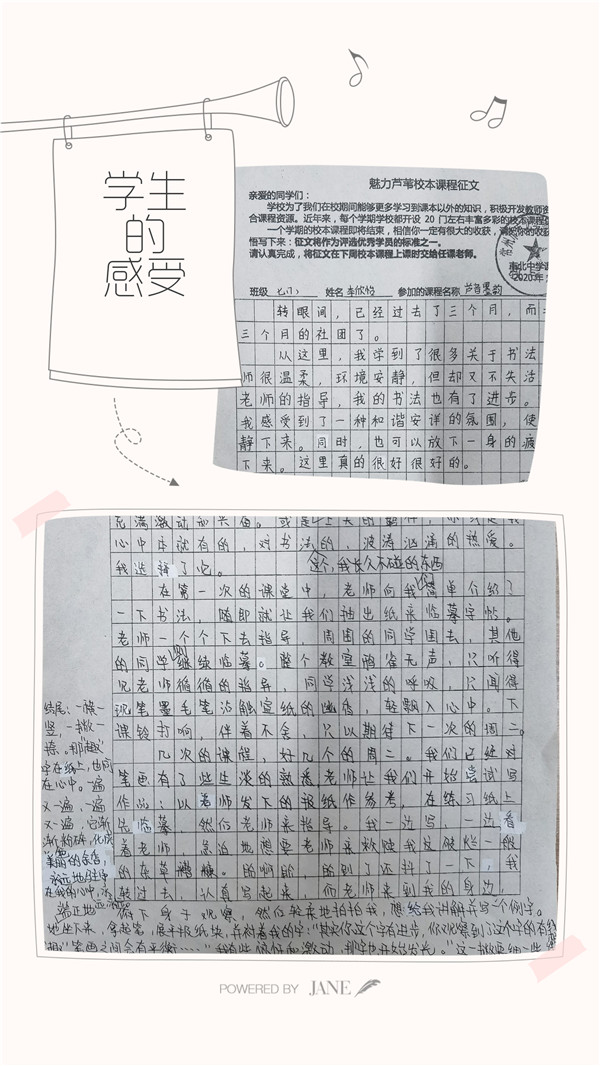 学生
的
感受
魅力芦苇校本课程征文
亲爱的同学们：
学校为了我们在校期间能够更多学习到课本以外的知识，积极开发教师资
合课程资源。近年来，每个学期学校都开设 20 门左右丰富多彩的校本课程
一个学期的校本课程即将结束，相信你一定有很大的收获，请把你的收获
悟写下来：征文将作为评选优秀学员的标准之一。
请认真完成，将征文在下周校本课程上课时交给任课老师。
常州
北中学课
2020年
班级 七(7) 姓名 李欣怡 参加的课程名称 芦苇墨韵
转眼间，已经过去了三个月，而
三个月的社团了。
从这里，我学到了很多关于书法
师很温柔，环境安静，但却又不失活
老师的指导，我的书法也有了进步。
我感受到了一种和谐安详的氛围，使
静下来。同时，也可以放下一身的疲
下来。这里真的很好很好的。
充满激动和兴奋。或是
心中本就有的，对书法的，波涛汹涌的热爱。
我选择了它。这个，我长久不碰的东西
在第一次的课堂中，老师向我们简单介绍了
一下书法，随即就让我们抽出纸来临摹字帖。
老师一个个下去指导，周围的同学围去，其他
的同学则继续临摹。整个教室鸦雀无声，只听得
见老师循循的指导，同学浅浅的呼吸，只闻得
沉笔墨毛笔沾触宣纸的幽香，轻飘入心中。下
课铃打响，伴着不舍，只以期待下一次的周二。
几次的课程，好几个的周二。我们已经对
笔画有了些生淡的熟悉，老师让我们开始尝试写
作品：以老师发下的报纸作参考，在练习纸上
先临摹，然后老师来指导。我一边写，一边看
着老师，急迫地想要老师来救赎我这破烂一般
的东草糟糠。的啊的，的到了还抖了一下，我
转过去，认真写起来。而老师来到我的身边，
俯下身子观察，然后轻柔地拍拍我，想给我讲解并写一个例字。
地坐下来，拿起笔，展平报纸块，并对着我的字："其实你这个字有进步，你观察到了这个字的
笔画之间会有平衡……"我有些俯仰而激动，那字也开始发光。"这一撇要细一些
结尾：一横一
竖，一撇一
捺。那"趣"
字在纸上，也同
在心中。一遍
又一遍，一遍
又一遍，它渐
渐粉碎，化成
美丽的余店，
永远地住
在我的心中，永
端正地
POWERED BY JANE